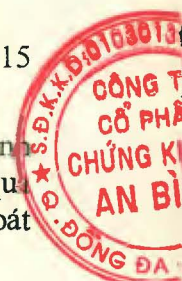 15
nh
qua
oát
S.Đ.K.K.D:0103013
CÔNG T
CỔ PHẦ
CHỨNG K
AN BÌ
Q. ĐỐNG ĐA